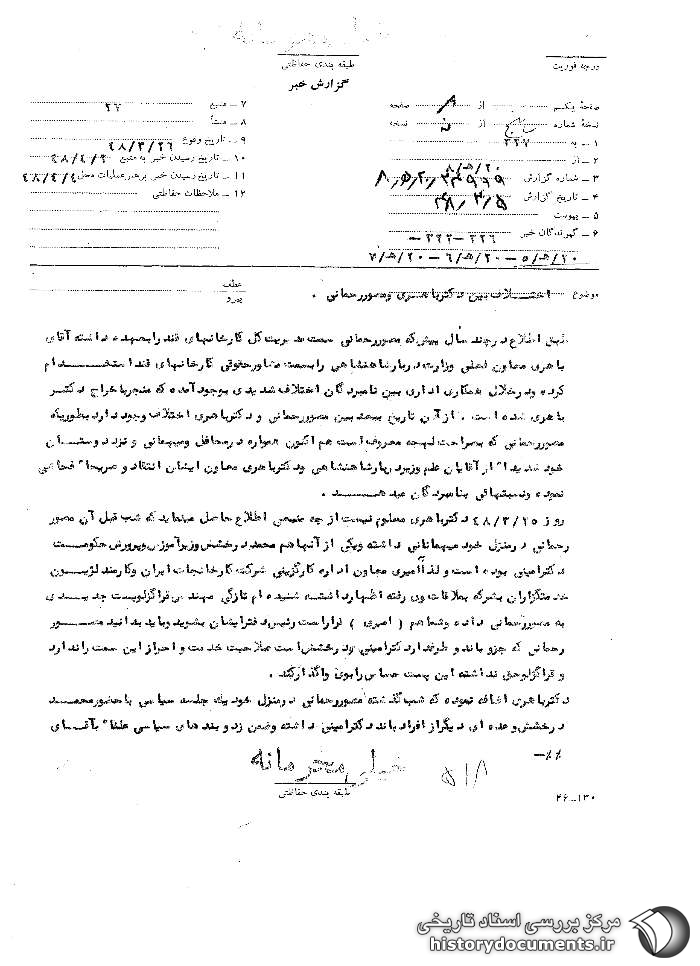 طبقه بندی حفاظتی
گزارش خبر
درجه فوریت
صفحهٔ یکم از ۸ صفحه
نسخهٔ شماره از نسخه
۱ ـ به ۳۲۷
۲ ـ از ۲۰/هـ/۸
۳ ـ شماره گزارش
۴ ـ تاریخ گزارش
۵ ـ پیوست
۶ ـ گیرندگان خبر ۳۲۶-۳۲۲-
۲۰/هـ/۵ - ۲۰/هـ/۶ - ۲۰/هـ/۷
۷ ـ منبع
۸ ـ منشأ
۹ ـ تاریخ وقوع ۴۸/۳/۲۶
۱۰ ـ تاریخ رسیدن خبر به منبع ۴۸/۴/۲
۱۱ ـ تاریخ رسیدن خبر برهبر عملیات محل ۴۸/۴/۴
۱۲ ـ ملاحظات حفاظتی
موضوع اختلاف بین دکتر باهری و مصور رحمانی .
عطف
پیرو
طبق اطلاع در چند سال پیش که مصور رحمانی سمت مدیریت کل کارخانهای قند را بعهده داشته آقای
باهری معاون فعلی وزارت دربار شاهنشاهی را بسمت مشاور حقوقی کارخانهای قند استخدام
کرده و در خلال همکاری اداری بین نامبردگان اختلاف شدیدی بوجود آمده که منجر باخراج دکتر
باهری شده است . از آن تاریخ ببعد بین مصور رحمانی و دکتر باهری اختلاف وجود دارد بطوریکه
مصور رحمانی که بصراحت لهجه معروف است هم اکنون همواره در محافل و میهمانی و نزد دوستان
خود شدیدا" از آقایان علم وزیر دربار شاهنشاهی و دکتر باهری معاون ایشان انتقاد و صریحا" فحاشی
نموده و نسبتهائی بنامبردگان میدهد .
روز ۴۸/۳/۲۵ دکتر باهری معلوم نیست از چه منبعی اطلاع حاصل مینماید که شب قبل آن مصور
رحمانی در منزل خود میهمانانی داشته و یکی از آنها هم محمد درخشش وزیر آموزش و پرورش حکومت
دکتر امینی بوده است و لذا امیری معاون اداره کارگزینی شرکت کارخانجات ایران و کارمند لژیون
خدمتگزاران بشر که بملاقات وی رفته اظهار داشته شنیده ام تازگی مهندس قراگزلو پست جدیدی
به مصور رحمانی داده و شما هم ( امیری ) قرار است رئیس دفتر ایشان بشوید و باید بدانید مصور
رحمانی که جزو باند و طرفدار دکتر امینی و درخشش است صلاحیت خدمت و احراز این سمت را ندارد
و قراگزلو حق نداشته این پست حساس را بوی واگذار کند .
دکتر باهری اضافه نموده که شب گذشته مصور رحمانی در منزل خود یک جلسه سیاسی با حضور محمد
درخشش و عده ای دیگر از افراد باند دکتر امینی داشته و ضمن زد و بندهای سیاسی علنا" بآقای
خیلی محرمانه
طبقه بندی حفاظتی
۵/۸
۱۳۰-۲۶
مرکز بررسی اسناد تاریخی
historydocuments.ir